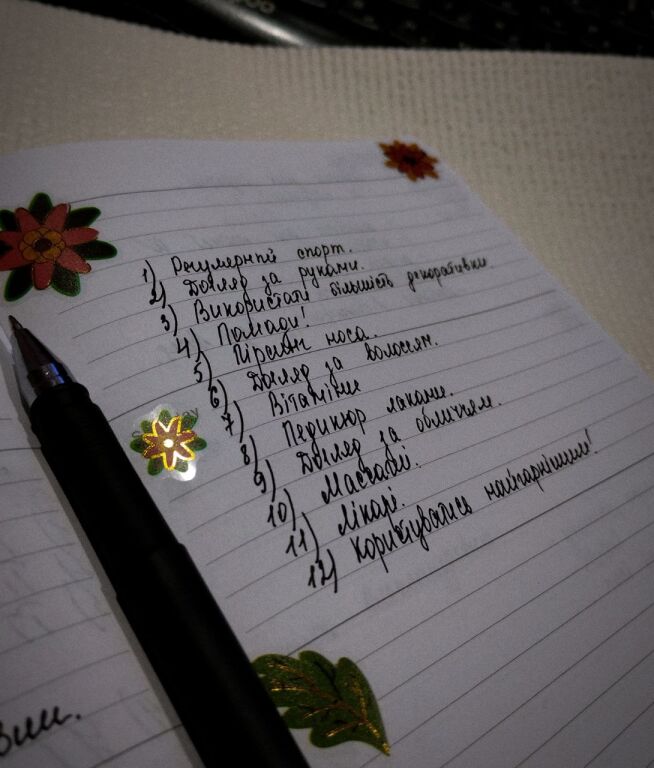 1) Регулярний спорт.
2) Догляд за руками.
3) Використати більшість декоративки.
4) Помади!
5) Пірсинг носа.
6) Догляд за волоссям.
7) Вітаміни
8) Педикюр лаками.
9) Догляд за обличчям.
10) Масажі.
11) Лікарі.
12) Користуватись найгарнішим!